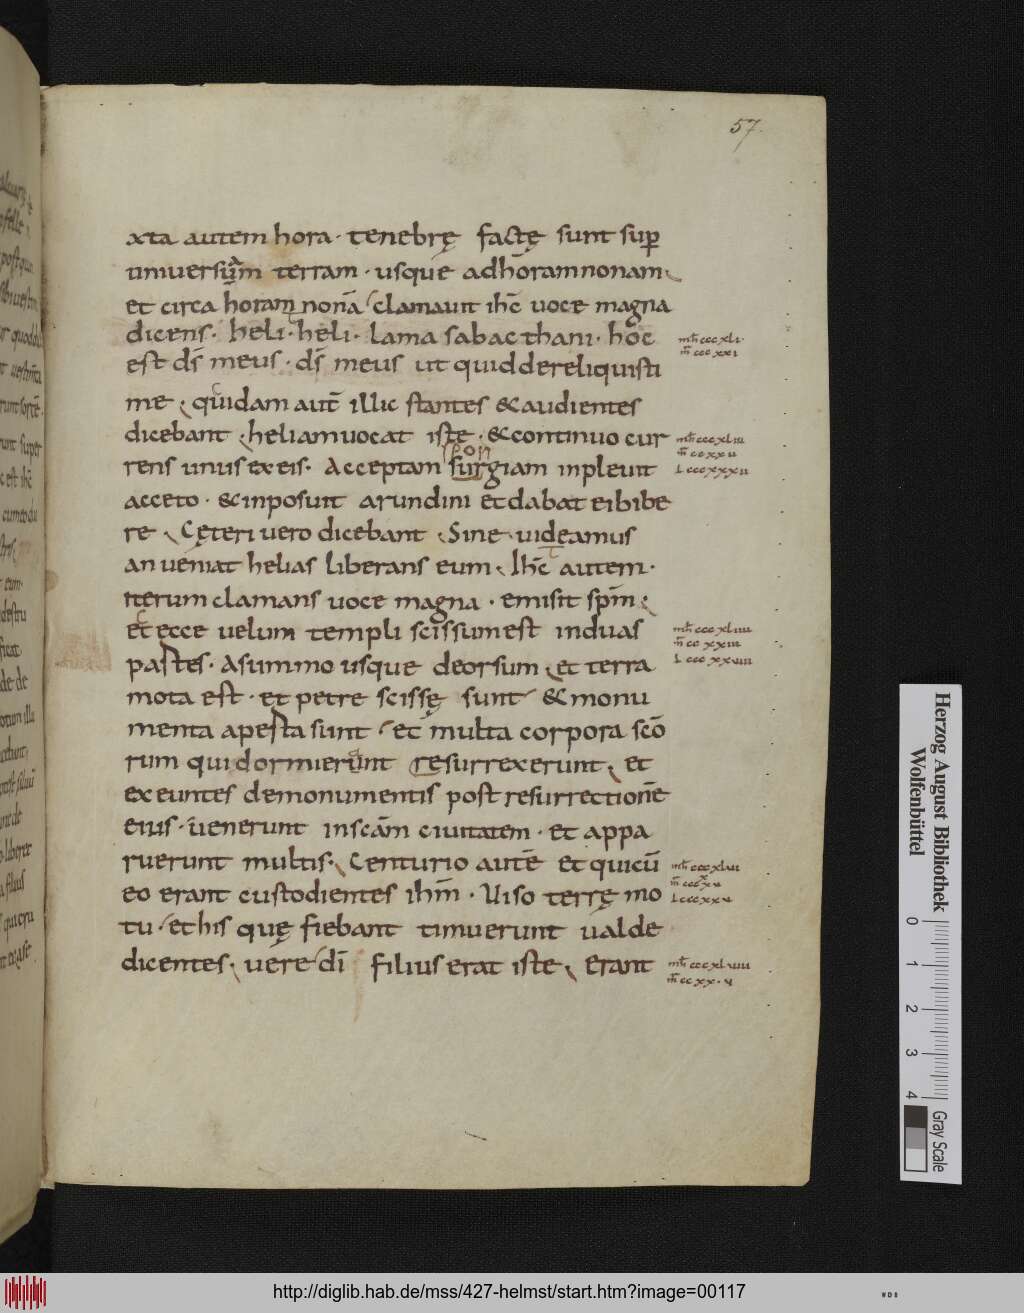 57.
xta autem hora · tenebrę factę sunt sup
uniuersum terram · usque adhoramnonam
et circa horam nonā clamauit ihc̄ uoce magna
dicens · heli · heli · lama sabacthani · hoc
mт̄ cccxli
m̄ ccxxi
est ds̄ meus · ds̄ meus ut quid dereliquisti
me · quidam aut̄ illic stantes &audientes
dicebant · heliamuocat iste · &continuo cur
spon
rens unus exeis · Acceptam surgiam inpleuit
acceto · &inposuit arundini etdabat eibibe
re · Cęteri uero dicebant · Sine · uideamus
an ueniat helias liberans eum · Ihc̄ autem ·
iterum clamans uoce magna · emisit spm̄
et ecce uelum templi scissumest induas
partes · Asummo usque deorsum · et terra
mota est · et petre scissę sunt &monu
menta aperta sunt · et multa corpora scō
rum qui dormierunt resurrexerunt · et
exeuntes demonumentis post resurrectionē
eius · uenerunt inscām ciuitatem · et appa
ruerunt multis · Centurio autē et quicū
eo erant custodientes ihm̄ · Uiso terrę mo
tu · ethis quę fiebant timuerunt ualde
dicentes · uere dī filius erat iste · Erant
Herzog August Bibliothek
Wolfenbüttel
0 1 2 3 4
Gray Scale
http://diglib.hab.de/mss/427-helmst/start.htm?image=00117